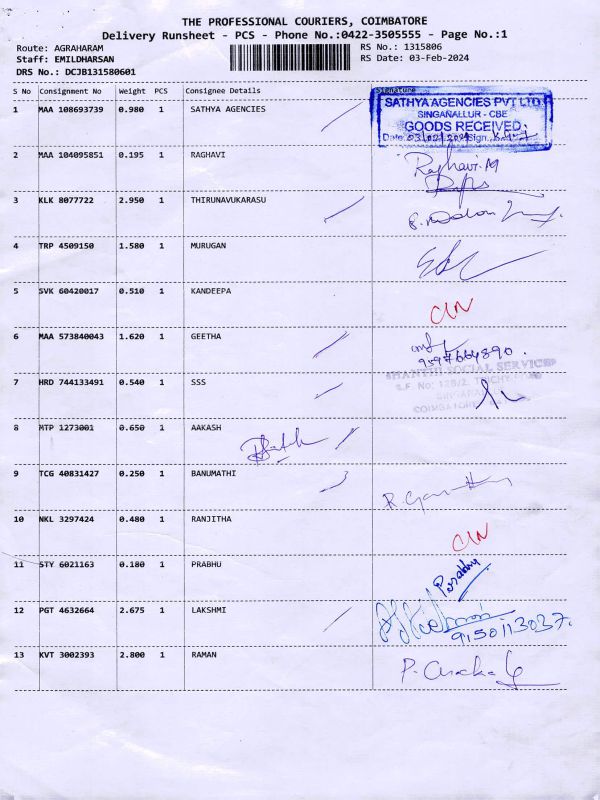 THE PROFESSIONAL COURIERS, COIMBATORE
Delivery Runsheet - PCS - Phone No.:0422-3505555 - Page No.:1
Route: AGRAHARAM RS No.: 1315806
Staff: EMILDHARSAN RS Date: 03-Feb-2024
DRS No.: DCJB131580601
S No Consignment No Weight PCS Consignee Details Signature
1 MAA 108693739 0.980 1 SATHYA AGENCIES
SATHYA AGENCIES PVT LTD
SINGANALLUR - CBE
GOODS RECEIVED
Date: 03/02/2024 Sign.
2 MAA 104095851 0.195 1 RAGHAVI Raghavi.M
3 KLK 8077722 2.950 1 THIRUNAVUKARASU
4 TRP 4509150 1.580 1 MURUGAN
5 SVK 60420017 0.510 1 KANDEEPA C/N
6 MAA 573840043 1.620 1 GEETHA
9597664890.
SHANTHI SOCIAL SERVICES
7 HRD 744133491 0.540 1 SSS S.F. No: 128/2, TRICHY
COIMBATORE
8 MTP 1273001 0.650 1 AAKASH
9 TCG 40831427 0.250 1 BANUMATHI
10 NKL 3297424 0.480 1 RANJITHA C/N
11 STY 6021163 0.180 1 PRABHU Prabhu
12 PGT 4632664 2.675 1 LAKSHMI
9150113037.
13 KVT 3002393 2.800 1 RAMAN